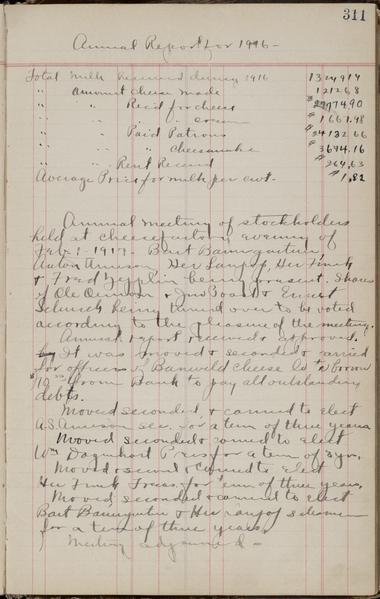 311
Annual Report for 1916 -
Total Milk Received during 1916 1324919
" Amount Cheese Made 121268
" " Rec'd for cheese
" " " cream $1661.98
" " Paid Patrons $24132.66
" " " Cheesemaker $3694.16
" " Rent Received $264.63
Average Price for milk per cwt. $1.82
Annual meeting of stockholders
held at cheesefactory evening of
Feb. 1 - 1917 - Bart Baumgartner
Anton Amerson
& Fred Zepplin being present. Shares
of Ole & Jno Boald & Ernest
being turned over to be voted
according to the pleasure of the meeting.
Annual report received & approved.
It was moved & seconded & carried
for officers of Cheese Co to borrow
from Bank to pay all outstanding
debts.
Moved seconded & carried to elect
A.S. Amerson sec. for a term of three years
Moved seconded & carried to elect
Wm Dagenhart Pres for a term of 3 yrs.
Moved & second & carried to elect
Her Funk Treas. for term of three years,
Moved seconded & carried to elect
Bart Baumgartner & Her salesmen
for a term of three years.
Meeting adjourned -